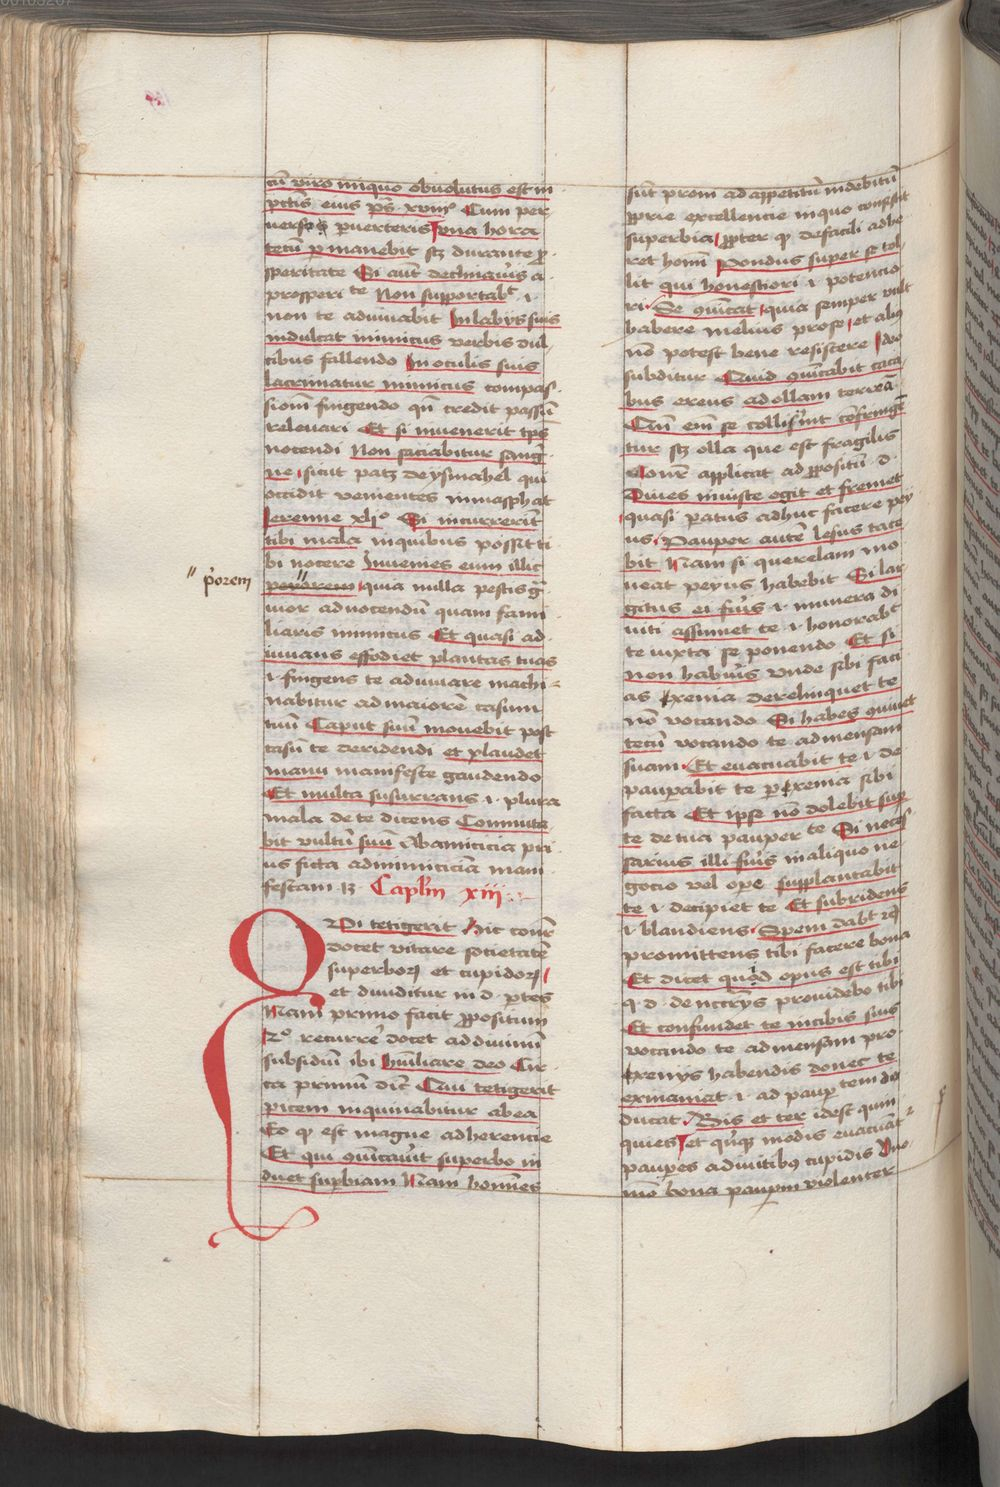 cū viro iniquo obuolutus est in
pctīs eius pˢ. xvijº Cum per
uerso puerteris vna hora
tecū pmanebit sƺ durante pro
speritate Si aūt declinaūis a
prosperitate Non supportabt .i.
non te adiuuabit In labijs suis
indulcat inimicus verbis dul
cibus fallendo In oculis suis
lacrimatur inimicus compas
sionē fingendo qn̄ credit passū
releuari Et si inuenerit tps
nocendi Non saciabitur sang
ne sicut patƺ de ysmahel qui
occidit venientes in masphat
Ieremie xljº Si incurrerit
tibi mala in quibus possit ti
bi nocere Inuenies eum illic
quia nulla pestis g
uior ad nocendū quam fami
liaris inimicus Et quasi ad
iuuans effodiet plantas tuas
.i. fingens te adiuuare machi
nabitur ad maiorē casum
tuū Caput suū mouebit post
casū te deridendi et plaudet
manu manifeste gaudendo
Et multa susurrans .i. plura
mala de te dicens Conmuta
bit vultū suū Ab amicicia pri
us ficta ad inimiciciā mani
festam Caplm xiij
p'orem
Qvi tetigerit Hic conr
docet vitare societatē
superborꝝ et cupidorꝝ
et diuiditur in d. ptes
Nam primo facit ppositum
2º recurre docet ad diuinū
subsidiū ibi humiliare deo Cir
ca primū dic Qui tetigerit
picem inquinabitur ab ea
Eo qꝫ est magne adherencie
Et qui cōicauit superbo in
duet supbiam Nam homines
sūt proni ad appetitū indebitū
pprie excellencie in quo consistit
superbia ppter qꝫ de facili adhe
ret homi Pondus super se tol
lit qui honestiori .i. potencio
ri Se cōicat quia semper vult
habere melius pro se et alius
nō potest bene resistere ideo
subditur Quid cōicabit caca
bus ereus ad ollam terreā
Qn̄ em̄ se collisūint cōfringe
tur sƺ olla que est fragilis
Conr applicat ad ppositū d.
Diues iniuste egit et fremet
quasi patus adhuc facere pey
us Pauper autē lesus tace
bit Nam si querelam mo
ueat peyus habebit Si lar
gitus ei fūis .i. munera di
uiti assumet te .i. honorabt
te iuxta se ponendo Et si
non habūis vnde sibi faci
as exenia derelinquet te
nō vocando Si habes cōuiuet
tecū vocando te ad mensam
suam Et euacuabit te .i. de
pauperabit te p exenia sibi
facta Et ipse nō dolebit sup
te de tua paupertate Si neces
sarius illi fūis in aliquo ne
gocio vel ope supplantabit
te .i. decipiet te Et subridens
.i. blandiens Spem dabt
promittens tibi facere bona
Et dicet quid opus est tibi
q. d. de nccrijs prouidebo tibi
Et confundet te in cibis suis
vocando te ad mensam pro
exenijs habendis donec te
exinaniat .i. ad paupertatem de
ducat Bis et ter idest qum
quies et qūqꝫ modis euacuat
paupes a diuitibꝯ cupidis Vno
mō bona paupum violenter